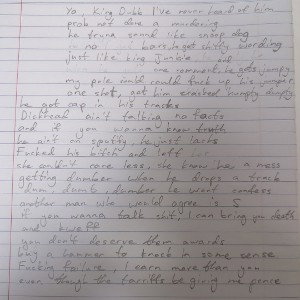 Yo, King Dibb I've never heard of him
prob not done a murdering
he tryna sound like snoop dog
no bars, he got shitty wording
just like king Junkie, did
one comment, he gets jumpy
my pole in his jumper
one shot, got him cracked humpty dumpty
he got cap in his tracks
Dickhead ain't talking no facts
and if you wanna know truth
he ain't on spotify, he just lacks
Fucked his bitch and left her
she couldn't care less, she know he a mess
getting dumber when he drops a track
dum, dumb, dumber he wont confess
another man who would agree is S
If you wanna talk shit, I can bring you death
and
you don't deserve them awards
buy a hammer to knock in some sense
Fucking failure, I earn more than you
even though the tariffs be giving me pence